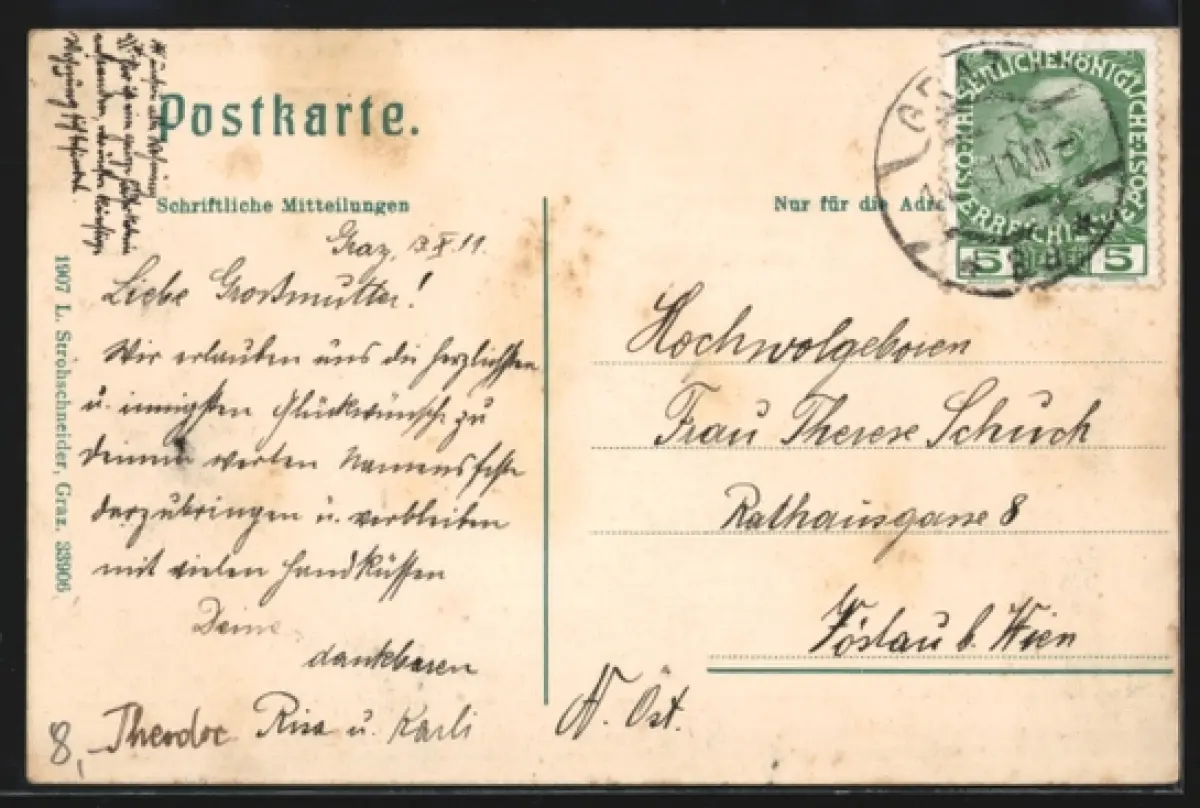 Postkarte.
Schriftliche Mitteilungen
Nur für die Adre
Graz, 13.X.11.
Liebe Großmutter!
Wir erlauben uns die herzlichsten
u. innigsten Glückwünsche zu
Deinem werten Namensfeste
darzubringen u. verbleiben
mit vielen Handküssen
Deine
dankbaren
Risa u. Karli
8, Theodor
1907 L. Strohschneider, Graz. 33906
GRAZ
KAISERLICHE KÖNIGLICHE ÖSTERREICHISCHE POST
5 HELLER 5
Hochwolgeboren
Frau Therese Schuch
Rathausgasse 8
Vöslau b. Wien
N. Öst.